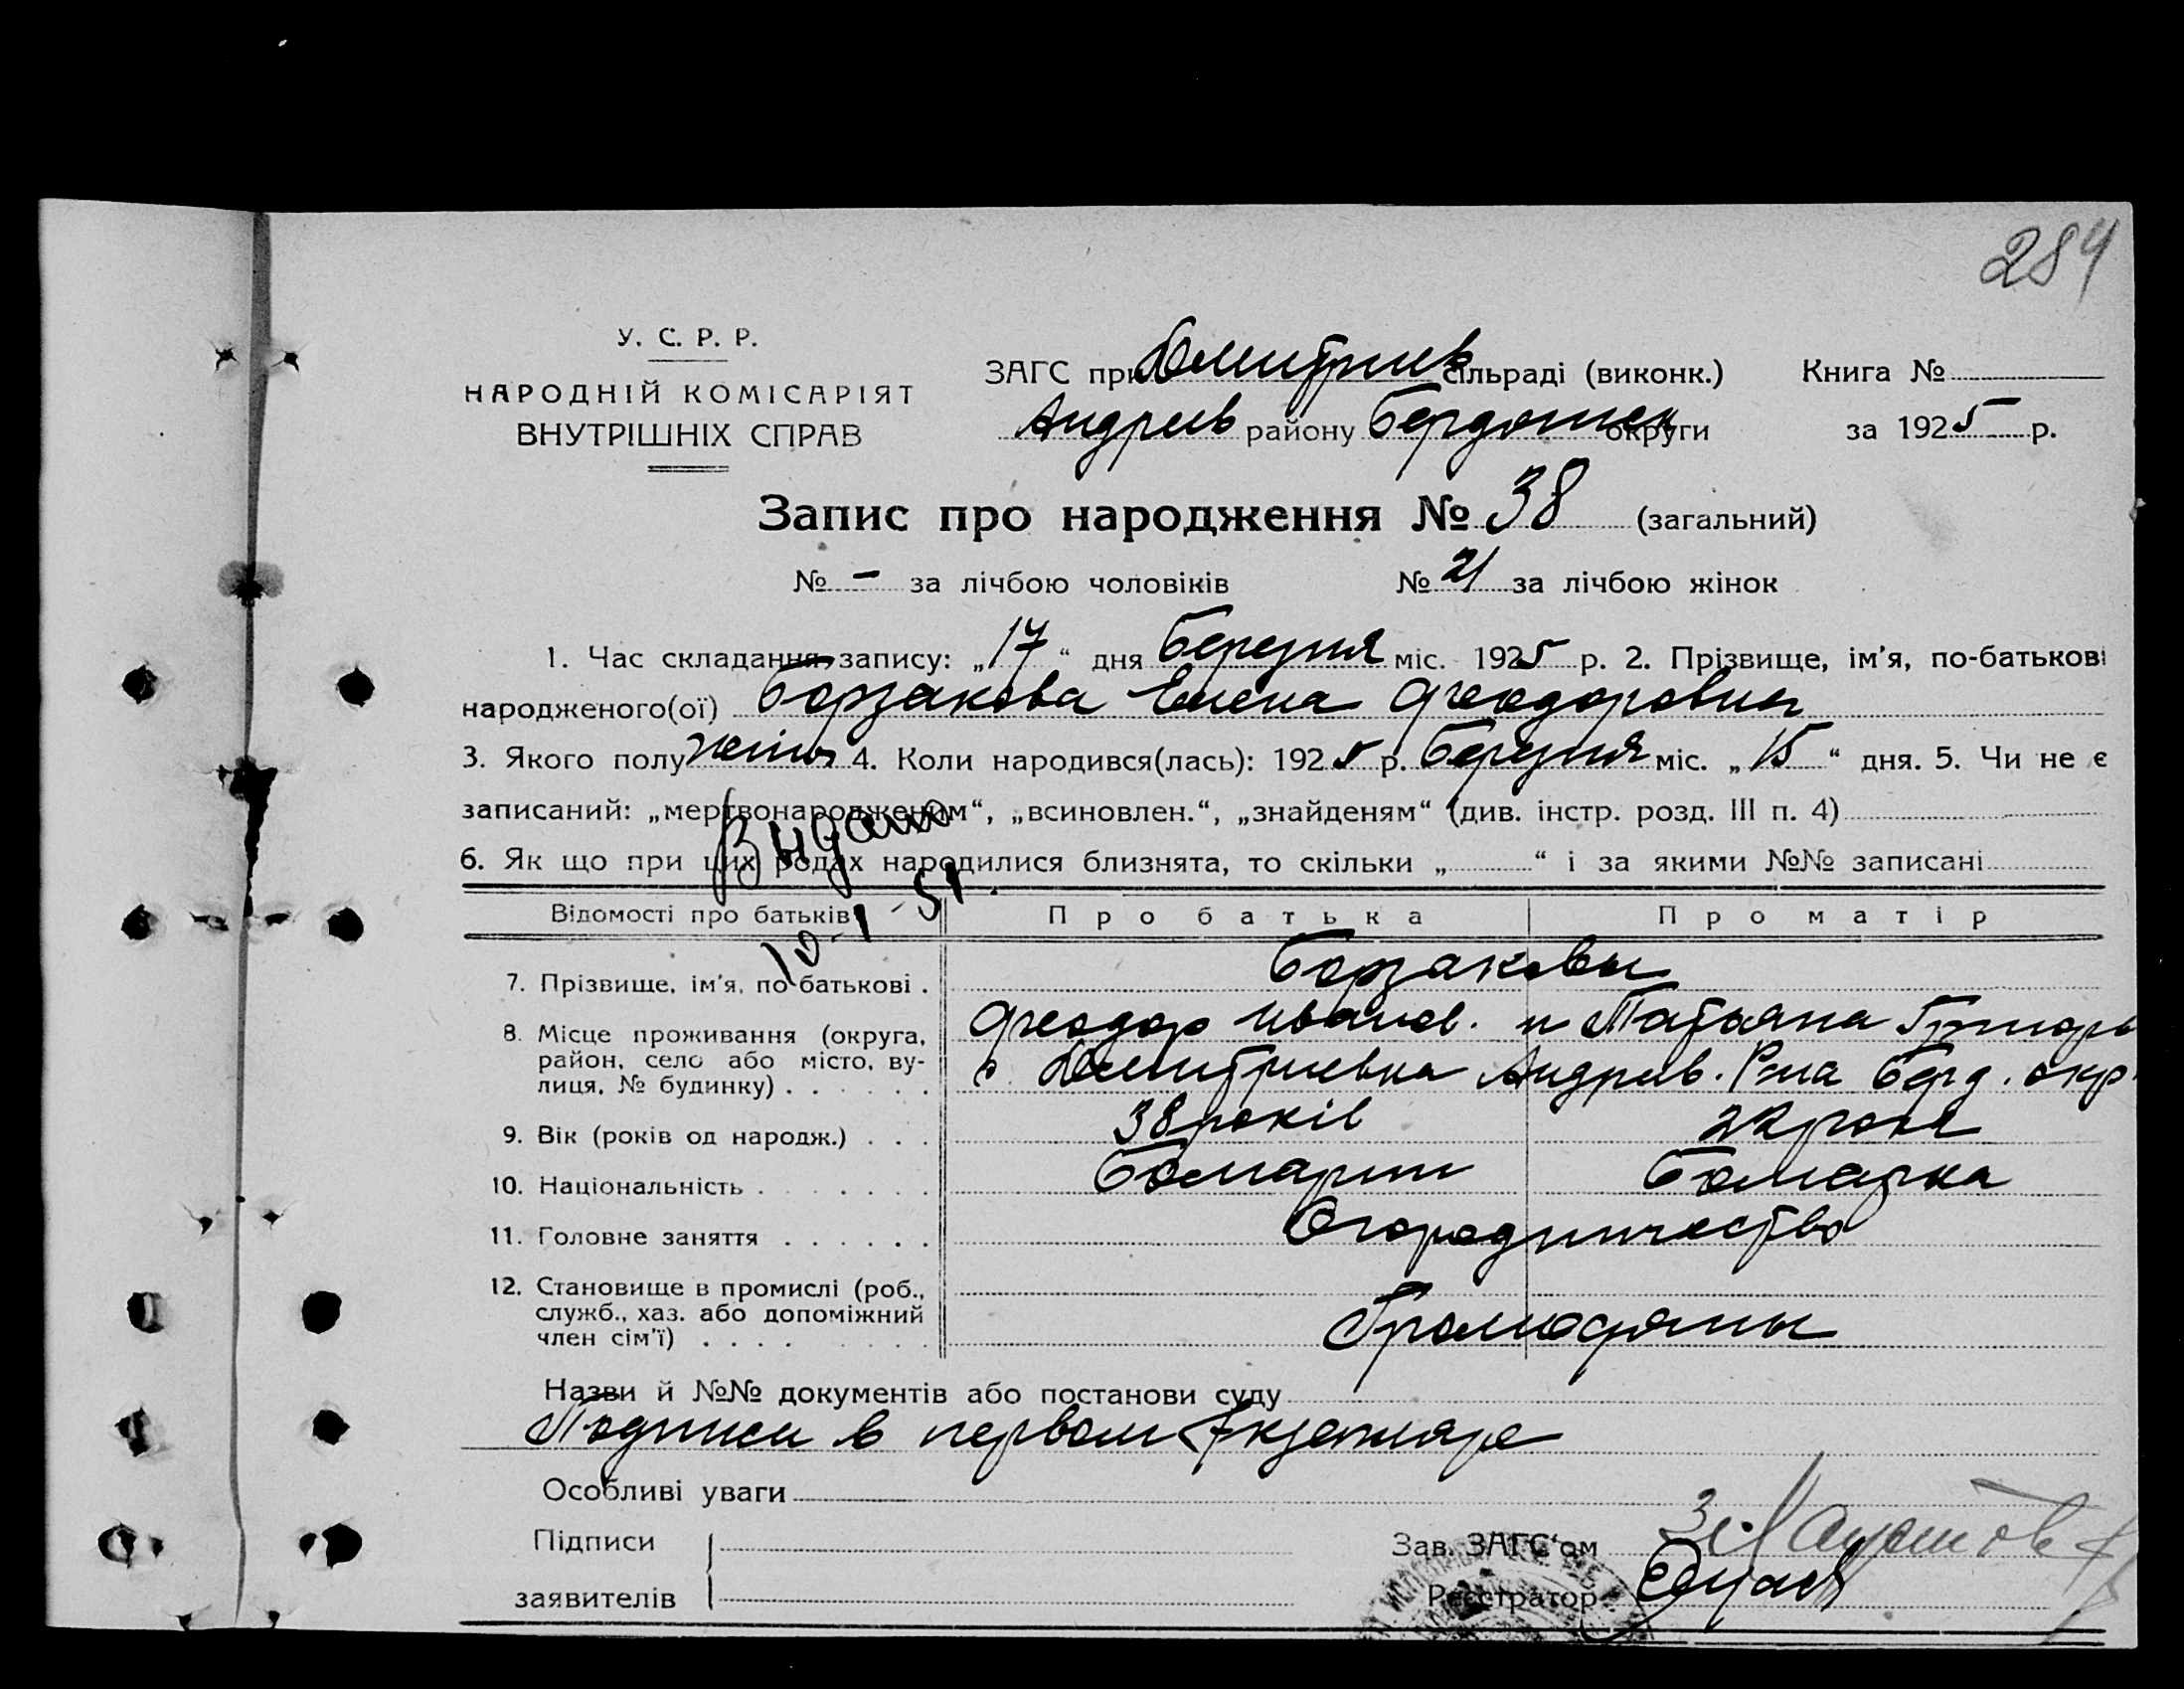 284
У. С. Р. Р.
НАРОДНІЙ КОМІСАРІЯТ
ВНУТРІШНІХ СПРАВ
ЗАГС при Дмитриев сільраді (виконк.) Книга №
Андреев району Бердянск округи за 1925 р.
Запис про народження № 38 (загальний)
№ – за лічбою чоловіків № 21 за лічбою жінок
1. Час складання запису: „17“ дня Березня міс. 1925 р. 2. Прізвище, ім'я, по-батькові
народженого(ої) Борзакова Елена Феодоровна
3. Якого полу жіноч 4. Коли народився(лась): 1925 р. Березня міс. „15“ дня. 5. Чи не є
записаний: „мертвонародженям“, „всиновлен.“, „знайденям“ (див. інстр. розд. III п. 4)
Выдано
6. Як що при цих родах народилися близнята, то скільки „ “ і за якими №№ записані
10-1-51
Відомості про батьків Про батька Про матір
7. Прізвище, ім'я, по батькові . Борзаковы
8. Місце проживання (округа, Феодор Иванов. и Татьяна Григорь
район, село або місто, ву-
лиця, № будинку) . . . . . с. Дмитриевка Андреев. Р-на Берд. окр.
9. Вік (років од народж.) . . . 38 років 22 роки
10. Національність . . . . . . . Болгарин Болгарка
11. Головне заняття . . . . . . Огородничество
12. Становище в промислі (роб.,
служб., хаз. або допоміжний
член сім'ї) . . . . . . . . Громодяны
Назви й №№ документів або постанови суду
Подписи в первом Экземляре
Особливі уваги
Підписи
заявителів
Зав. ЗАГС'ом
Реєстратор